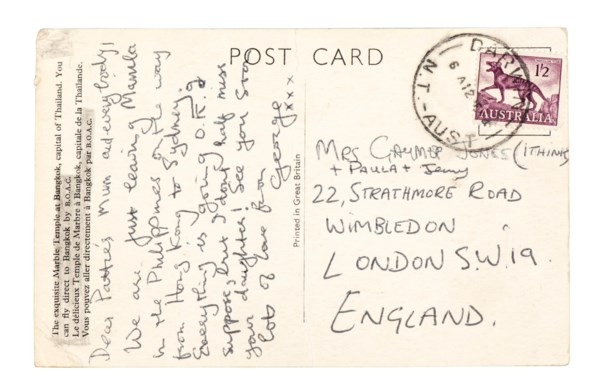 The exquisite Marble Temple at Bangkok, capital of Thailand. You
can fly direct to Bangkok by B.O.A.C.
Le délicieux Temple de Marbre à Bangkok, capitale de la Thaïlande.
Vous pouvez aller directement à Bangkok par B.O.A.C.
Dear Patties Mum and everybody,
We are just leaving Manila
in the Philippines on the way
from Hong Kong to Sydney.
Everything is going O.K. I
suppose, but I don't half miss
your daughter! See you soon
lots of love from
George
xxx
Printed in Great Britain
POST CARD
N.T.-AUST
6
1'2
AUSTRALIA
Mrs Jones (I THINK)
+ PAULA + Jenny
22, STRATHMORE ROAD
WIMBLEDON
LONDON S.W.19.
ENGLAND.